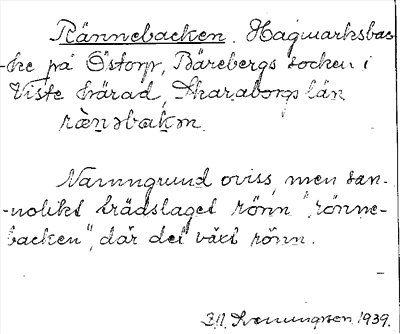 Rännebacken. Hagmarksbac-
-ke på Östorp, Bärebergs socken i
Viste härad, Skaraborgs län.
rænəbakən.
Namngrund oviss, men san-
-nolikt trädslaget rönn "rönne-
backen", där det växt rönn.
1939.